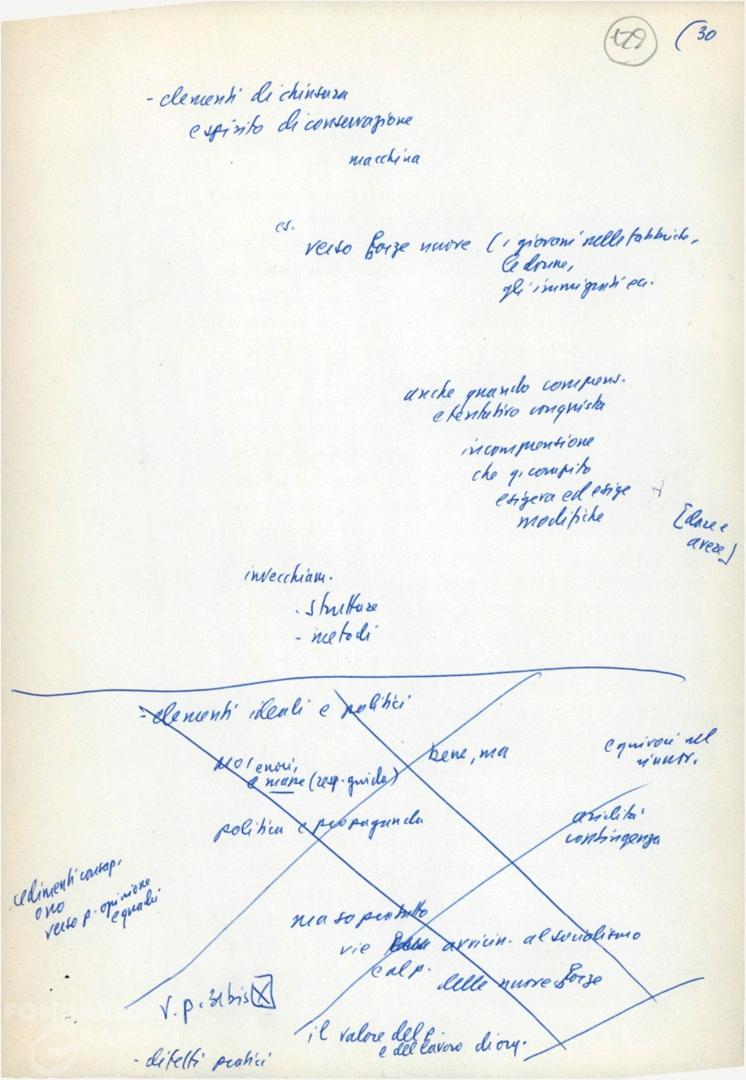 129 (30
- elementi di chiusura
e spirito di conservazione
macchina
es.
verso forze nuove (i giovani nelle fabbriche,
le donne,
gli immigrati ecc.
anche quando comprens.
e tentativo conquista
incomprensione
che q. compito
esigeva ed esige
modifiche
[dare e
avere]
invecchiam.
- strutture
- metodi
- elementi ideali e politici
noi errori,
e (resp. guida)
bene, ma
equivoci nel
politica e propaganda
aridità
contingenza
cedimenti consap.
o no
verso p. opinione
e quadri
ma soprattutto
vie avvicin. al socialismo
e al p.
delle nuove forze
V. p. 31 bis X
il valore del p.
e del lavoro di org.
- difetti pratici